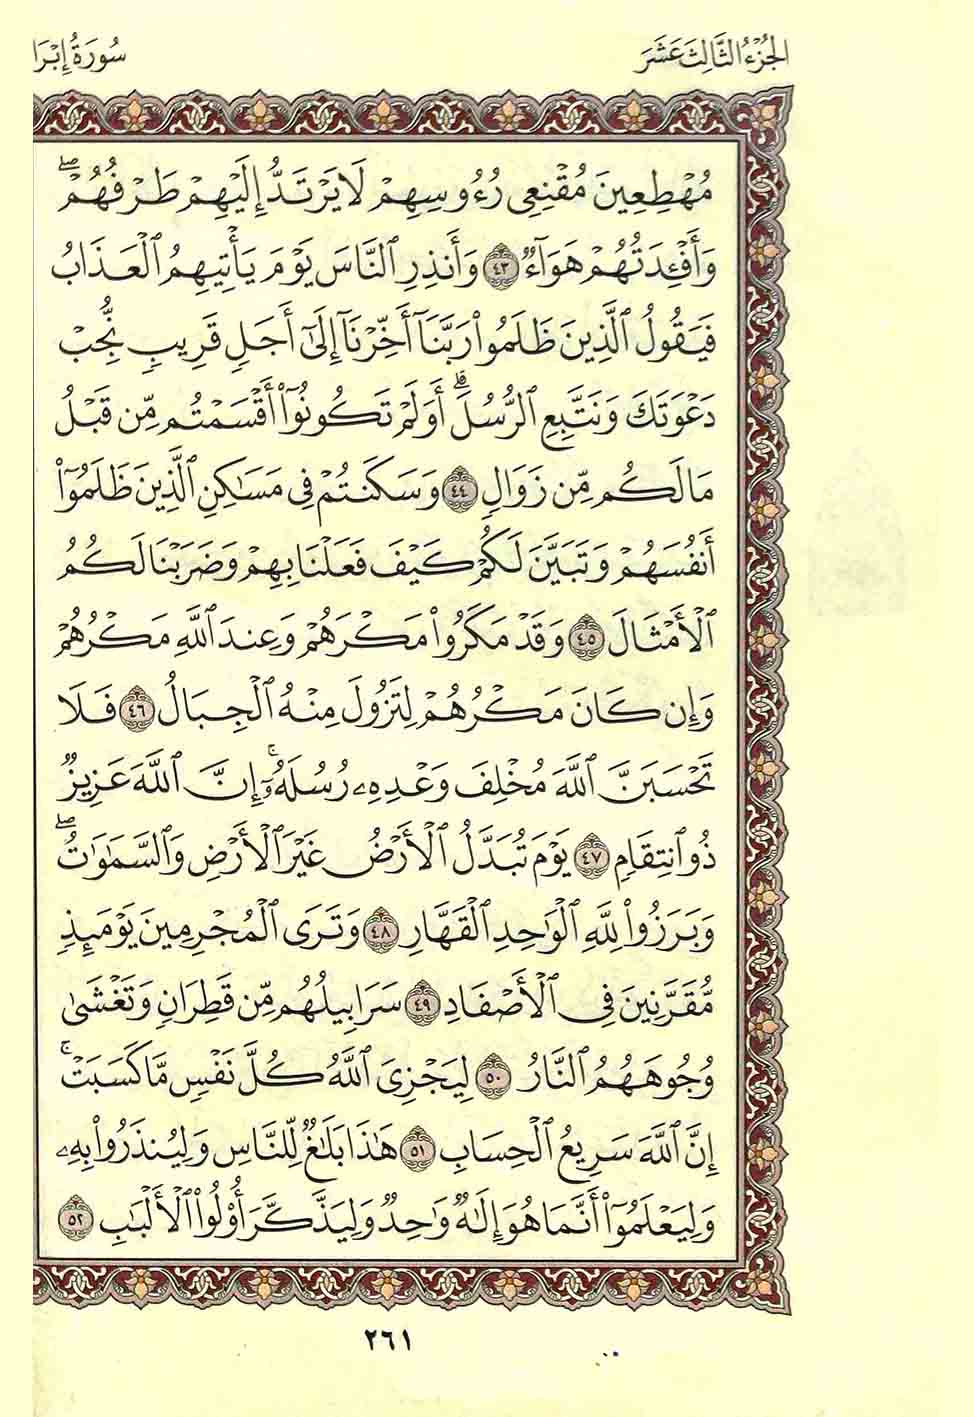 الجزء الثالث عشر
سورة إبرا
مُهْطِعِينَ مُقْنِعِى رُءُوسِهِمْ لَا يَرْتَدُّ إِلَيْهِمْ طَرْفُهُمْ ۖ
وَأَفْـِٔدَتُهُمْ هَوَآءٌ ٤٣ وَأَنذِرِ ٱلنَّاسَ يَوْمَ يَأْتِيهِمُ ٱلْعَذَابُ
فَيَقُولُ ٱلَّذِينَ ظَلَمُوا۟ رَبَّنَآ أَخِّرْنَآ إِلَىٰٓ أَجَلٍ قَرِيبٍ نُّجِبْ
دَعْوَتَكَ وَنَتَّبِعِ ٱلرُّسُلَ ۗ أَوَلَمْ تَكُونُوٓا۟ أَقْسَمْتُم مِّن قَبْلُ
مَا لَكُم مِّن زَوَالٍ ٤٤ وَسَكَنتُمْ فِى مَسَٰكِنِ ٱلَّذِينَ ظَلَمُوٓا۟
أَنفُسَهُمْ وَتَبَيَّنَ لَكُمْ كَيْفَ فَعَلْنَا بِهِمْ وَضَرَبْنَا لَكُمُ
ٱلْأَمْثَالَ ٤٥ وَقَدْ مَكَرُوا۟ مَكْرَهُمْ وَعِندَ ٱللَّهِ مَكْرُهُمْ
وَإِن كَانَ مَكْرُهُمْ لِتَزُولَ مِنْهُ ٱلْجِبَالُ ٤٦ فَلَا
تَحْسَبَنَّ ٱللَّهَ مُخْلِفَ وَعْدِهِۦ رُسُلَهُۥٓ ۚ إِنَّ ٱللَّهَ عَزِيزٌ
ذُو ٱنتِقَامٍ ٤٧ يَوْمَ تُبَدَّلُ ٱلْأَرْضُ غَيْرَ ٱلْأَرْضِ وَٱلسَّمَٰوَٰتُ ۖ
وَبَرَزُوا۟ لِلَّهِ ٱلْوَٰحِدِ ٱلْقَهَّارِ ٤٨ وَتَرَى ٱلْمُجْرِمِينَ يَوْمَئِذٍ
مُّقَرَّنِينَ فِى ٱلْأَصْفَادِ ٤٩ سَرَابِيلُهُم مِّن قَطِرَانٍ وَتَغْشَىٰ
وُجُوهَهُمُ ٱلنَّارُ ٥٠ لِيَجْزِىَ ٱللَّهُ كُلَّ نَفْسٍ مَّا كَسَبَتْ ۚ
إِنَّ ٱللَّهَ سَرِيعُ ٱلْحِسَابِ ٥١ هَٰذَا بَلَٰغٌ لِّلنَّاسِ وَلِيُنذَرُوا۟ بِهِۦ
وَلِيَعْلَمُوٓا۟ أَنَّمَا هُوَ إِلَٰهٌ وَٰحِدٌ وَلِيَذَّكَّرَ أُو۟لُوا۟ ٱلْأَلْبَٰبِ ٥٢
٢٦١